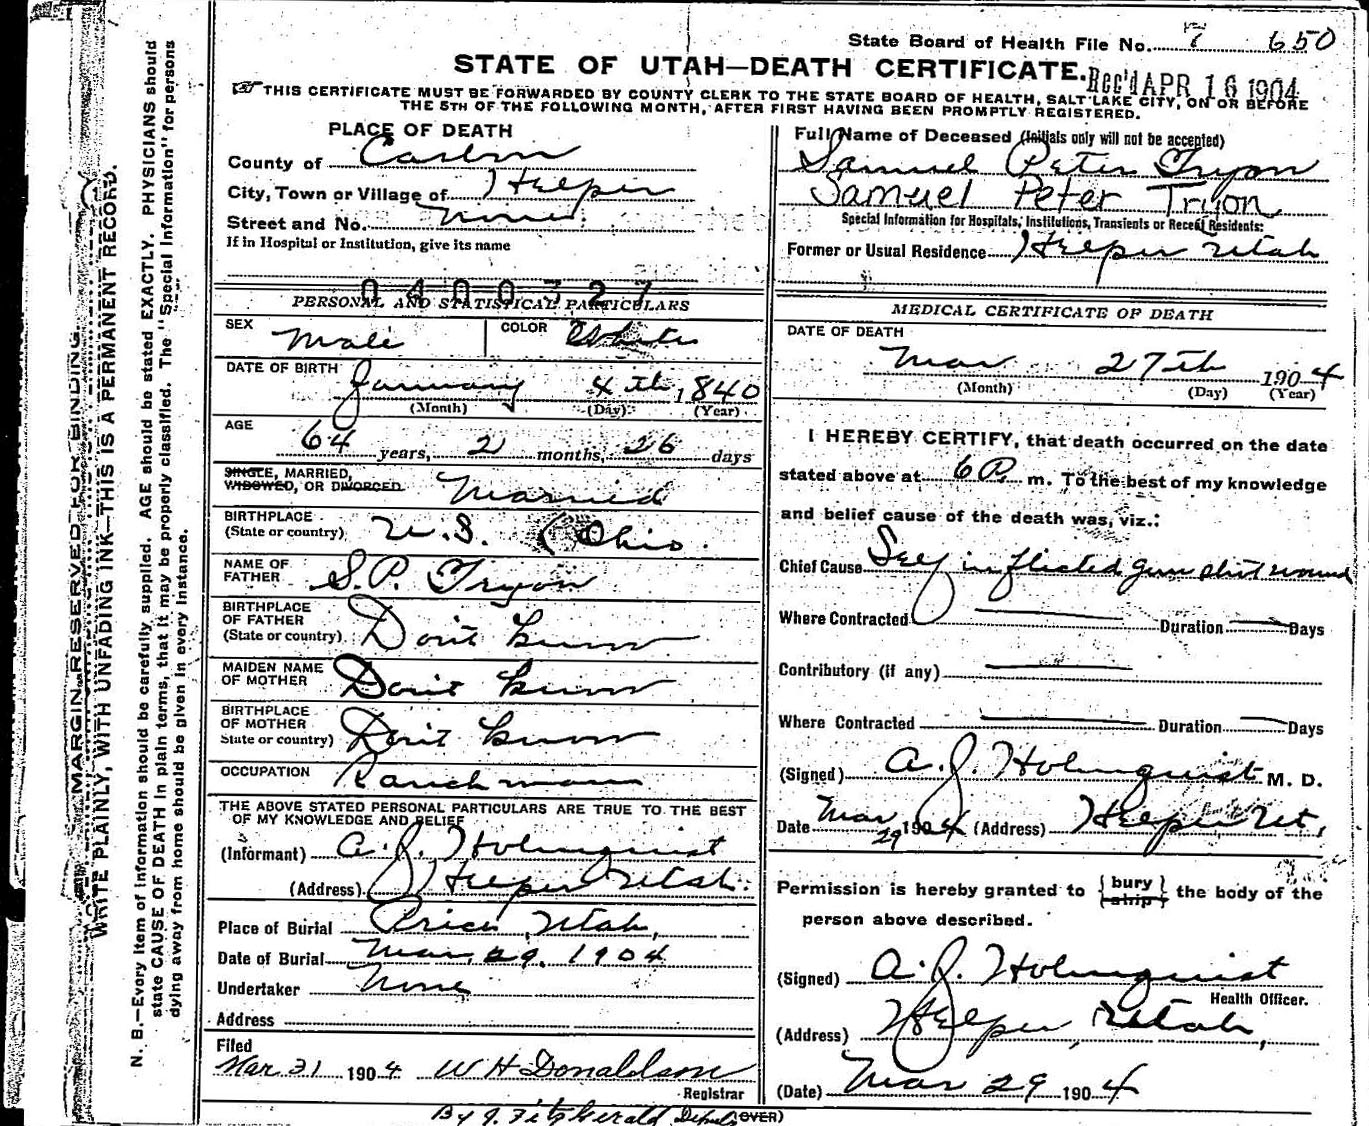 State Board of Health File No. 7 650
STATE OF UTAH—DEATH CERTIFICATE.
Rec'd APR 16 1904
THIS CERTIFICATE MUST BE FORWARDED BY COUNTY CLERK TO THE STATE BOARD OF HEALTH, SALT LAKE CITY, ON OR BEFORE
THE 5TH OF THE FOLLOWING MONTH, AFTER FIRST HAVING BEEN PROMPTLY REGISTERED.
MARGIN RESERVED FOR BINDING
WRITE PLAINLY, WITH UNFADING INK—THIS IS A PERMANENT RECORD.
N. B.—Every item of information should be carefully supplied. AGE should be stated EXACTLY. PHYSICIANS should
state CAUSE OF DEATH in plain terms, that it may be properly classified. The "Special Information" for persons
dying away from home should be given in every instance.
PLACE OF DEATH
County of Carbon
City, Town or Village of Helper
Street and No. None.
If in Hospital or Institution, give its name
0400727
PERSONAL AND STATISTICAL PARTICULARS
SEX Male COLOR White
DATE OF BIRTH January 4th, 1840
(Month) (Day) (Year)
AGE
64 years, 2 months, 26 days
SINGLE, MARRIED,
WIDOWED, OR DIVORCED Married
BIRTHPLACE
(State or country) U.S. (Ohio.
NAME OF
FATHER S.P. Tryon
BIRTHPLACE
OF FATHER
(State or country) Don't know
MAIDEN NAME
OF MOTHER Don't know
BIRTHPLACE
OF MOTHER
State or country) Don't know
OCCUPATION Ranchman
THE ABOVE STATED PERSONAL PARTICULARS ARE TRUE TO THE BEST
OF MY KNOWLEDGE AND BELIEF
(Informant) A. J. Holmquist
(Address) Helper Utah.
Place of Burial Price, Utah,
Date of Burial Mar. 29. 1904
Undertaker None
Address
Filed
Mar 31 1904 W H Donaldson
Registrar
By J. Fitzgerald Deputy (OVER)
Full Name of Deceased (Initials only will not be accepted)
Samuel Peter Tryon
Samuel Peter Tryon
Special Information for Hospitals, Institutions, Transients or Recent Residents:
Former or Usual Residence Helper Utah
MEDICAL CERTIFICATE OF DEATH
DATE OF DEATH
Mar 27th 1904
(Month) (Day) (Year)
I HEREBY CERTIFY, that death occurred on the date
stated above at 6 P. m. To the best of my knowledge
and belief cause of the death was, viz.:
Chief Cause Self inflicted gun shot wound
Where Contracted Duration Days
Contributory (if any)
Where Contracted Duration Days
(Signed) A. J. Holmquist M. D.
Date Mar 29 1904 (Address) Helper Ut.
Permission is hereby granted to { bury / ship } the body of the
person above described.
(Signed) A. J. Holmquist
Health Officer.
(Address) Helper, Utah,
(Date) Mar 29 1904